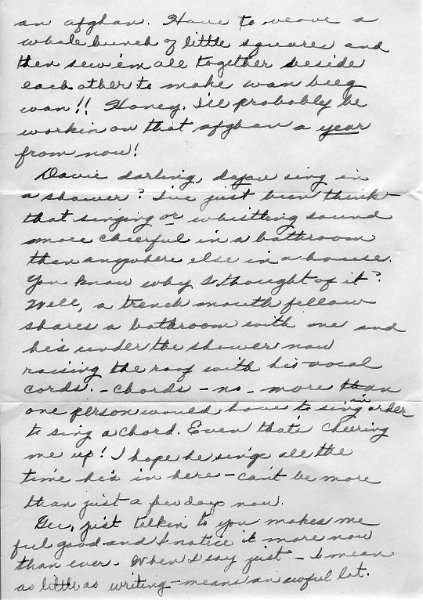 an afghan. Have to weave a
whole bunch of little squares and
then sew 'em all together beside
each other to make wan beeg
wan!! Honey, I'll probably be
workin on that afghan a year
from now!
Davie darling, dajou sing in
a shower? I've just been think-
that singing or whistling sound
more cheerful in a bathroom
then anywhere else in a house.
You know why I thought of it?
Well, a trench mouth fellow
shares a bathroom with me and
he's under the shower now
raising the roof with his vocal
cords. - chords - no - more than
one person would have to sing in order
to sing a chord. Even that's cheering
me up! I hope he sings all the
time he's in here - can't be more
than just a few days now.
Gee, just talken to you makes me
feel good and I notice it more now
than ever. When I say just - I mean
as little as writing - means an awful lot.